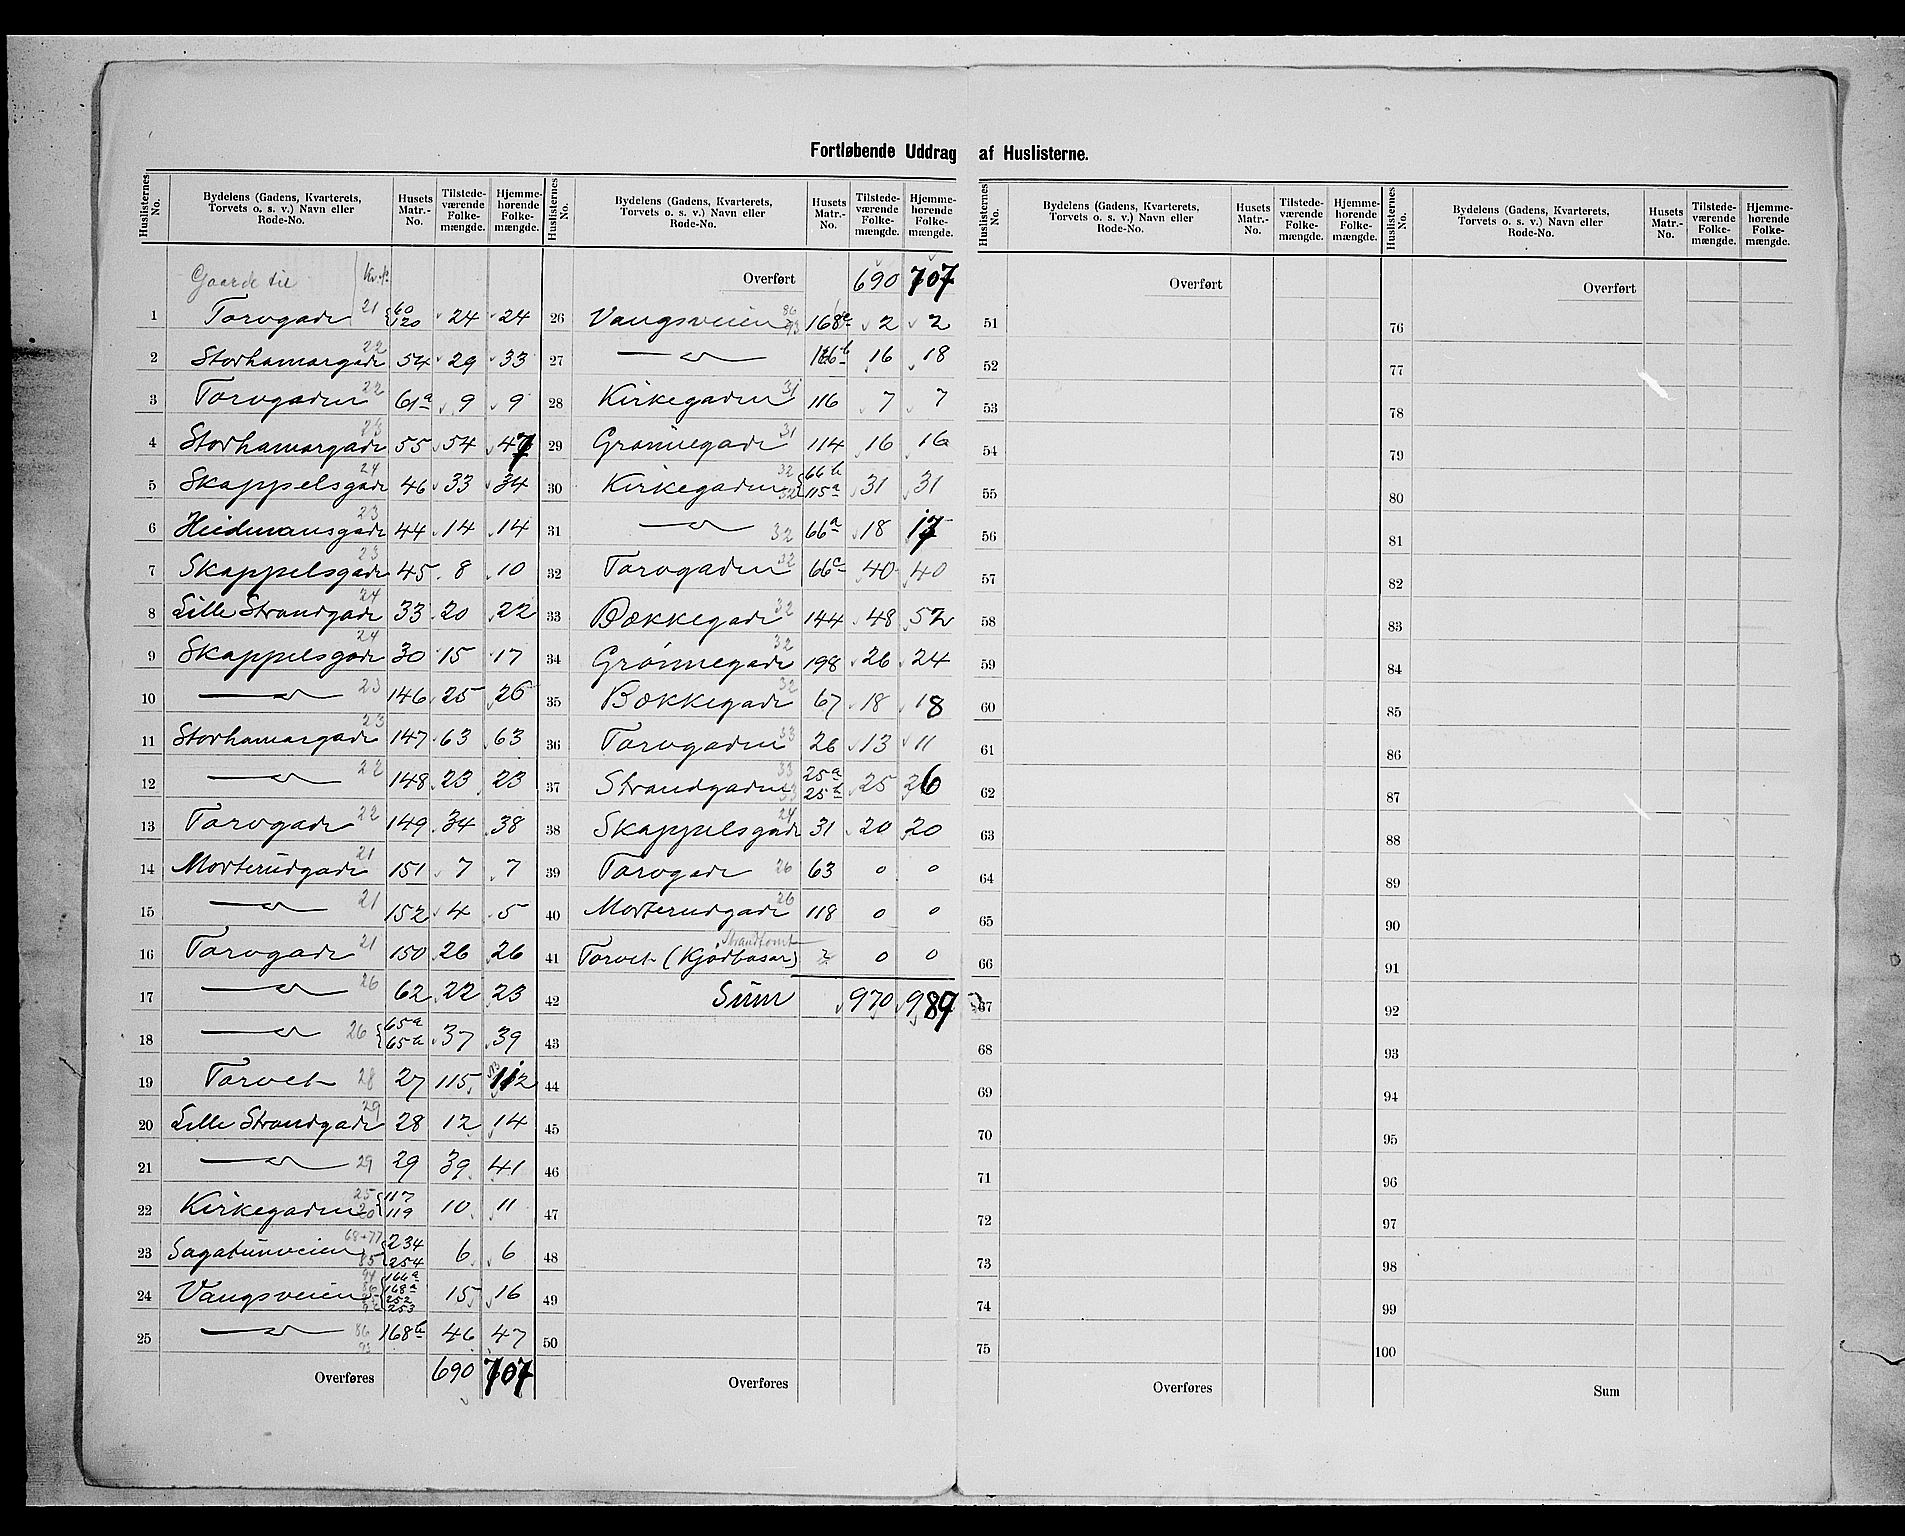 Fortløbende Uddrag af Huslisterne.
Huslisternes No. | Bydelens (Gadens, Kvarterets, Torvets o. s. v.) Navn eller Rode-No. | Husets Matr.-No. | Tilstedeværende Folkemængde. | Hjemmehørende Folkemængde.
Gaarde til | Kv.
1 Torvgade 21 60 120 24 24
2 Storhamargade 22 54 29 33
3 Torvgaden 22 61a 9 9
4 Storhamargade 23 55 54 47
5 Skappelsgade 24 46 33 34
6 Heidmansgade 23 44 14 14
7 Skappelsgade 23 45 8 10
8 Lille Strandgade 24 33 20 22
9 Skappelsgade 24 30 15 17
10 —"— 23 146 25 26
11 Storhamargade 23 147 63 63
12 —"— 22 148 23 23
13 Torvgade 22 149 34 38
14 Morterudgade 21 151 7 7
15 —"— 21 152 4 5
16 Torvgade 21 150 26 26
17 —"— 26 62 22 23
18 —"— 26 65a 65b 37 39
19 Torvet 28 27 115 112
20 Lille Strandgade 29 28 12 14
21 —"— 29 29 39 41
22 Kirkegaden 25 20 117 119 10 11
23 Sagatunveien 68+77 85 234 254 6 6
24 Vangsveien 166a 168a 252 253 15 16
25 —"— 86 93 168b 46 47
Overføres 690 707
Huslisternes No. | Bydelens (Gadens, Kvarterets, Torvets o. s. v.) Navn eller Rode-No. | Husets Matr.-No. | Tilstedeværende Folkemængde. | Hjemmehørende Folkemængde.
Overført 690 707
26 Vangsveien 86 93 168c 2 2
27 —"— 166b 16 18
28 Kirkegaden 31 116 7 7
29 Grønnegade 31 114 16 16
30 Kirkegaden 32 32 66b 115a 31 31
31 —"— 32 66a 18 17
32 Torvgaden 32 66c 40 40
33 Bækkegade 32 144 48 52
34 Grønnegade 32 198 26 24
35 Bækkegade 32 67 18 18
36 Torvgaden 33 26 13 11
37 Strandgaden 33 33 25a 25b 25 26
38 Skappelsgade 24 31 20 20
39 Torvgade 26 63 0 0
40 Morterudgade 26 118 0 0
41 Torvet (Kjødbasar) Strandtomt 0 0
42 Sum 970 987
43
44
45
46
47
48
49
50
Overføres
Huslisternes No. | Bydelens (Gadens, Kvarterets, Torvets o. s. v.) Navn eller Rode-No. | Husets Matr.-No. | Tilstedeværende Folkemængde. | Hjemmehørende Folkemængde.
Overført
51
52
53
54
55
56
57
58
59
60
61
62
63
64
65
66
67
68
69
70
71
72
73
74
75
Overføres
Huslisternes No. | Bydelens (Gadens, Kvarterets, Torvets o. s. v.) Navn eller Rode-No. | Husets Matr.-No. | Tilstedeværende Folkemængde. | Hjemmehørende Folkemængde.
Overført
76
77
78
79
80
81
82
83
84
85
86
87
88
89
90
91
92
93
94
95
96
97
98
99
100
Sum